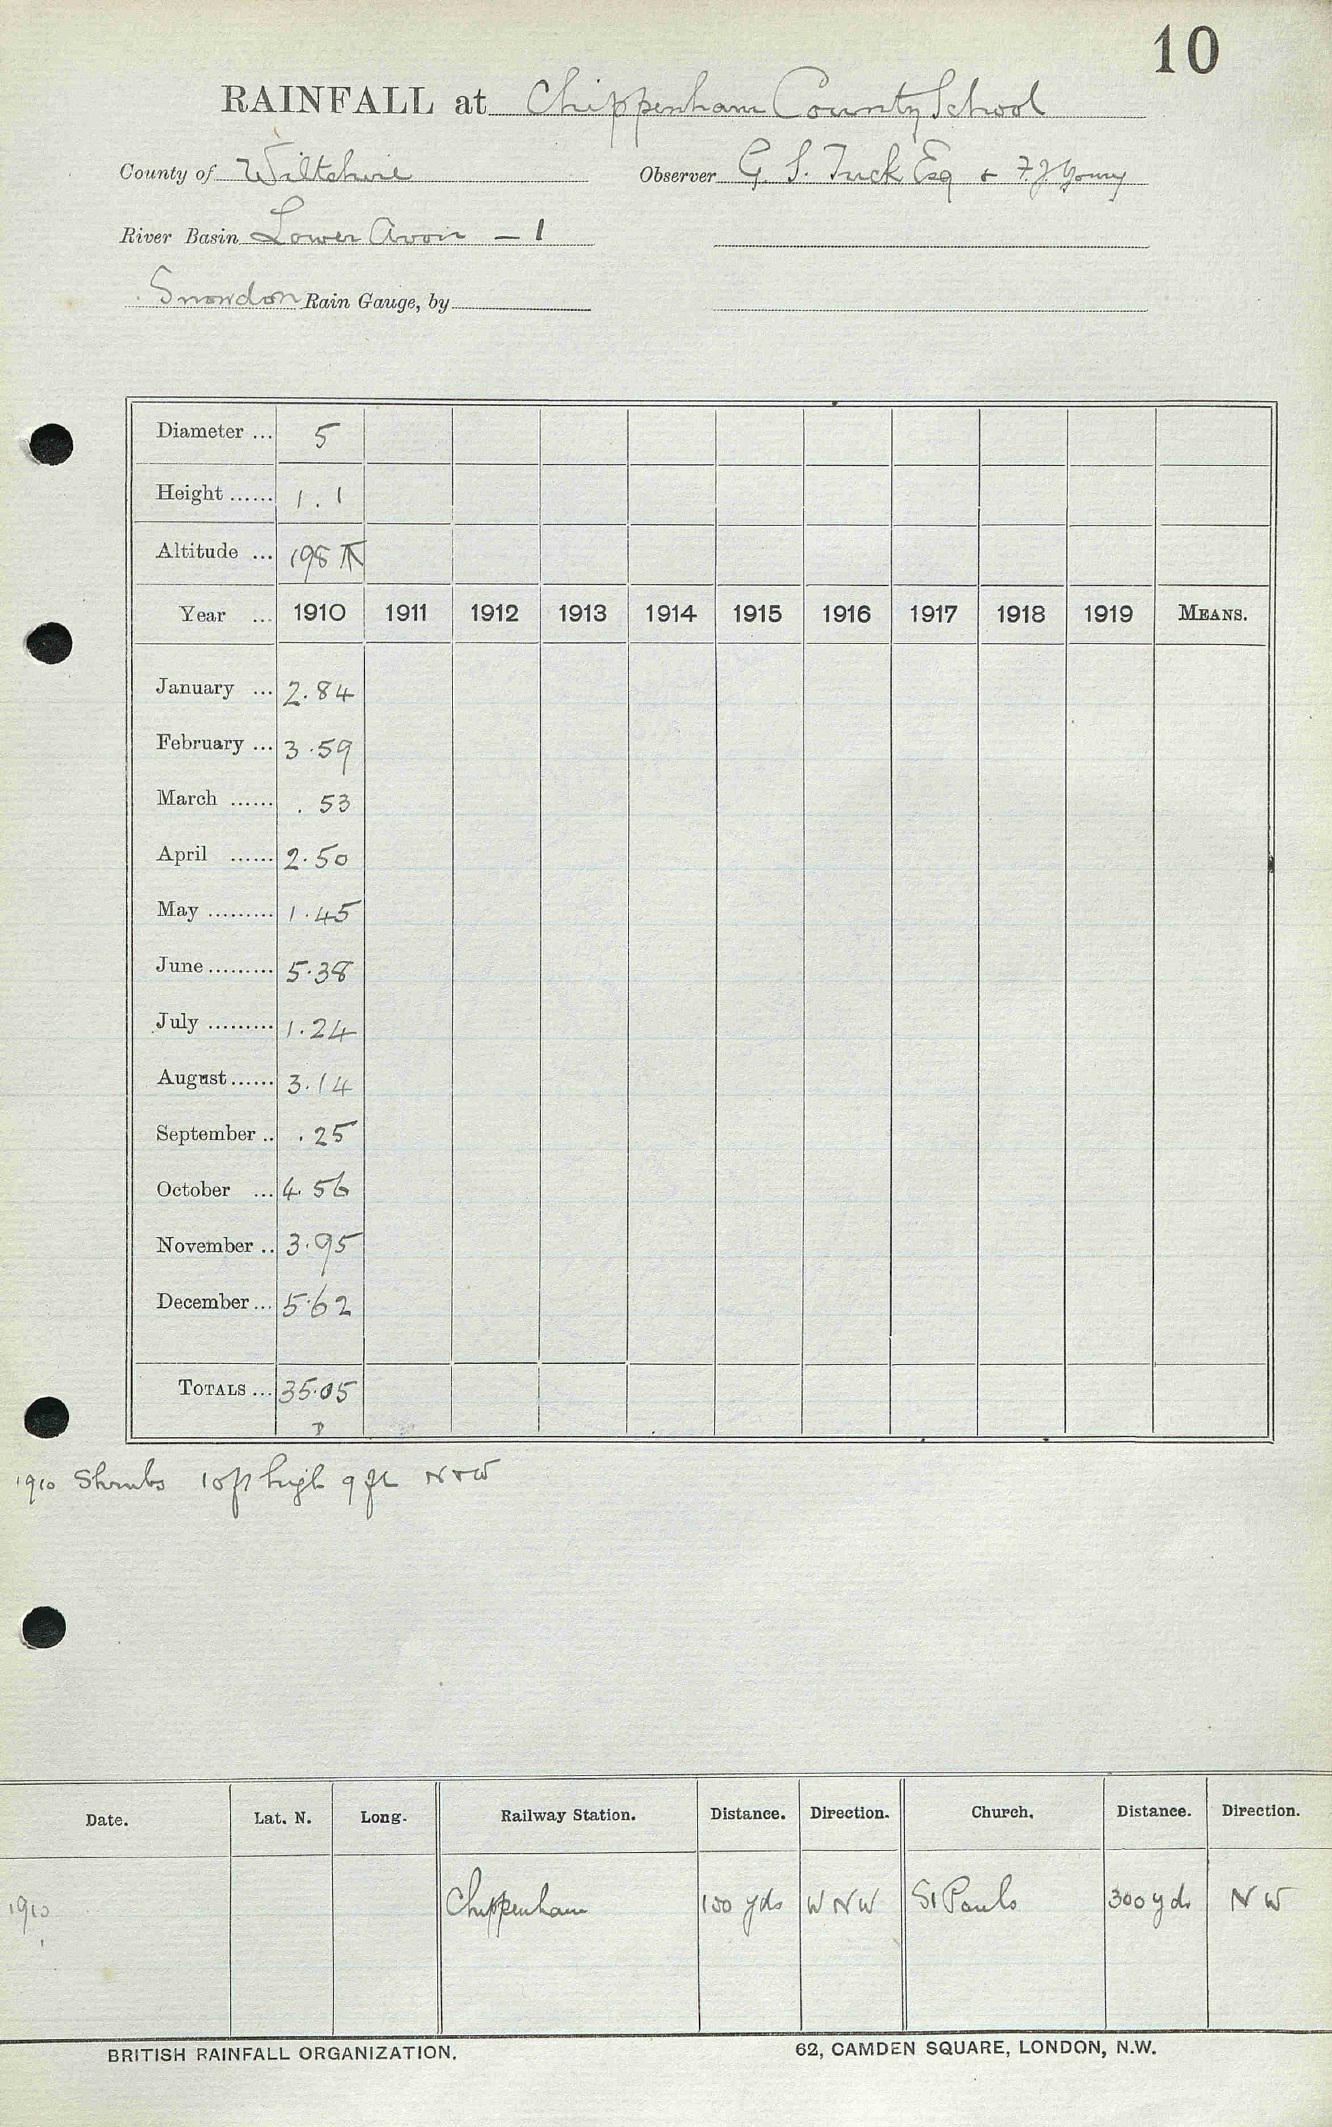 10
RAINFALL at Chippenham County School
County of Wiltshire Observer G. S. Tuck Esq & F. J. Young
River Basin Lower Avon - 1
Snowdon Rain Gauge, by
Diameter ... 5
Height ...... 1.1
Altitude ... 198
Year ... 1910 1911 1912 1913 1914 1915 1916 1917 1918 1919 MEANS.
January ... 2.84
February ... 3.59
March ...... .53
April ...... 2.50
May ......... 1.45
June ......... 5.38
July ......... 1.24
August ...... 3.14
September .. .25
October ... 4.56
November .. 3.95
December ... 5.62
TOTALS ... 35.05
1910 Shrubs 10ft high 9 ft N & W
Date. Lat. N. Long. Railway Station. Distance. Direction. Church. Distance. Direction.
1910 Chippenham 100 yds W N W St Pauls 300 yds N W
BRITISH RAINFALL ORGANIZATION. 62, CAMDEN SQUARE, LONDON, N.W.